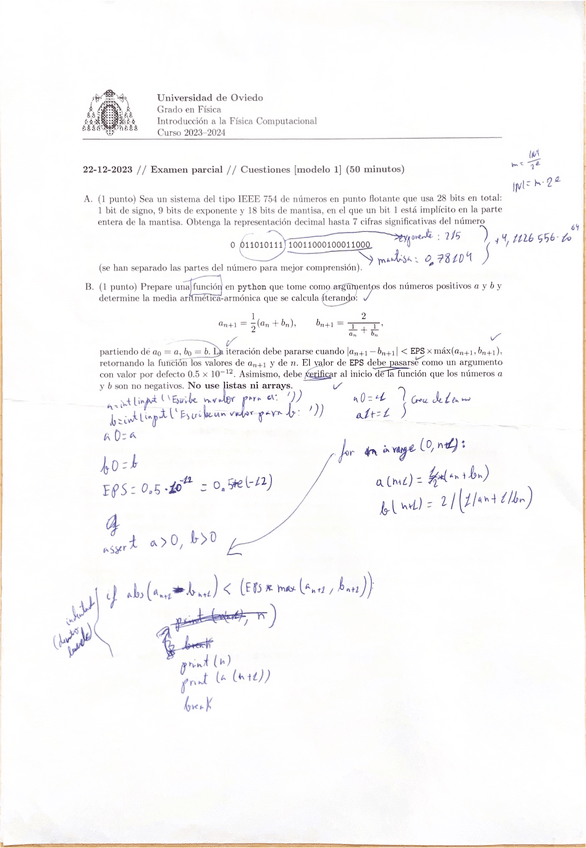 Universidad de Oviedo
Grado en Física
Introducción a la Física Computacional
Curso 2023–2024
22-12-2023 // Examen parcial // Cuestiones [modelo 1] (50 minutos)
m = |N| / 2^e
|N| = m · 2^e
A. (1 punto) Sea un sistema del tipo IEEE 754 de números en punto flotante que usa 28 bits en total:
1 bit de signo, 9 bits de exponente y 18 bits de mantisa, en el que un bit 1 está implícito en la parte
entera de la mantisa. Obtenga la representación decimal hasta 7 cifras significativas del número
0 011010111 100110001000011000
exponente: 215
mantisa: 0,78104
(se han separado las partes del número para mejor comprensión).
B. (1 punto) Prepare una función en python que tome como argumentos dos números positivos a y b y
determine la media aritmética-armónica que se calcula iterando:
a_{n+1} = 1/2 (a_n + b_n), b_{n+1} = 2 / (1/a_n + 1/b_n),
partiendo de a_0 = a, b_0 = b. La iteración debe pararse cuando |a_{n+1} − b_{n+1}| < EPS × máx(a_{n+1}, b_{n+1}),
retornando la función los valores de a_{n+1} y de n. El valor de EPS debe pasarse como un argumento
con valor por defecto 0.5 × 10^{−12}. Asimismo, debe verificar al inicio de la función que los números a
y b son no negativos. No use listas ni arrays.
b=int(input('Escribe un valor para b: '))
a0=a
b0=b
EPS = 0,5 · 10^{-12} = 0,5e(-12)
assert a>0, b>0
in range (0, n+1):
a(n+1) =
b(n+1) = 2/(1/an + 1/bn)
if abs(a_{n+1} - b_{n+1}) < (EPS * max(a_{n+1}, b_{n+1})):
print (n)
print (a (n+1))
break